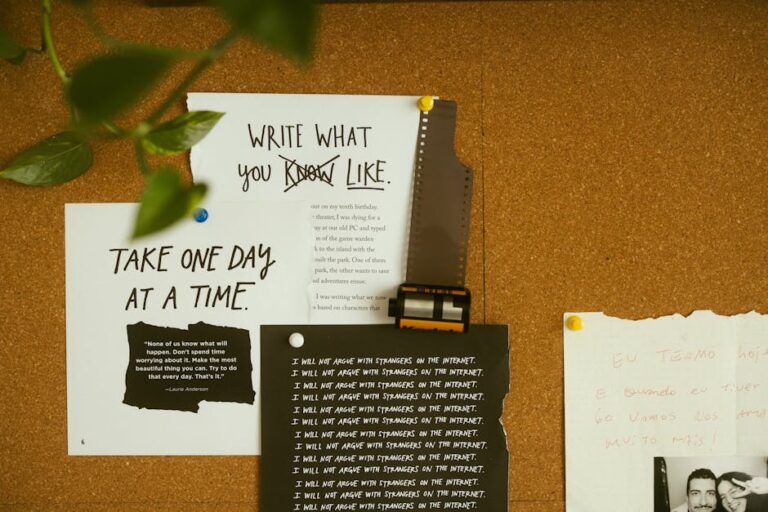 WRITE WHAT
YOU KNOW LIKE.
out on my tenth birthday.
theater, I was dying for a
at our old PC and typed
of the game warden
to the island with the
built the park. One of them
park, the other wants to save
adventures ensue.
I was writing what we now
based on characters that
TAKE ONE DAY
AT A TIME.
"None of us know what will
happen. Don't spend time
worrying about it. Make the most
beautiful thing you can. Try to do
that every day. That's it."
—Laurie Anderson
6
I WILL NOT ARGUE WITH STRANGERS ON THE INTERNET.
I WILL NOT ARGUE WITH STRANGERS ON THE INTERNET.
I WILL NOT ARGUE WITH STRANGERS ON THE INTERNET.
I WILL NOT ARGUE WITH STRANGERS ON THE INTERNET.
I WILL NOT ARGUE WITH STRANGERS ON THE INTERNET.
I WILL NOT ARGUE WITH STRANGERS ON THE INTERNET.
I WILL NOT ARGUE WITH STRANGERS ON THE INTERNET.
I WILL NOT ARGUE WITH STRANGERS ON THE INTERNET.
I WILL NOT ARGUE WITH STRANGERS ON THE INTERNET.
I WILL NOT ARGUE WITH STRANGERS ON THE INTERNET.
I WILL NOT ARGUE WITH STRANGERS ON THE INTERNET.
I WILL NOT ARGUE WITH STRANGERS ON THE INTERNET.
I WILL NOT ARGUE WITH STRANGERS ON THE INTERNET.
EU TE AMO hoje
E quando eu tiver
60 vamos nos
MUITO MAIS!